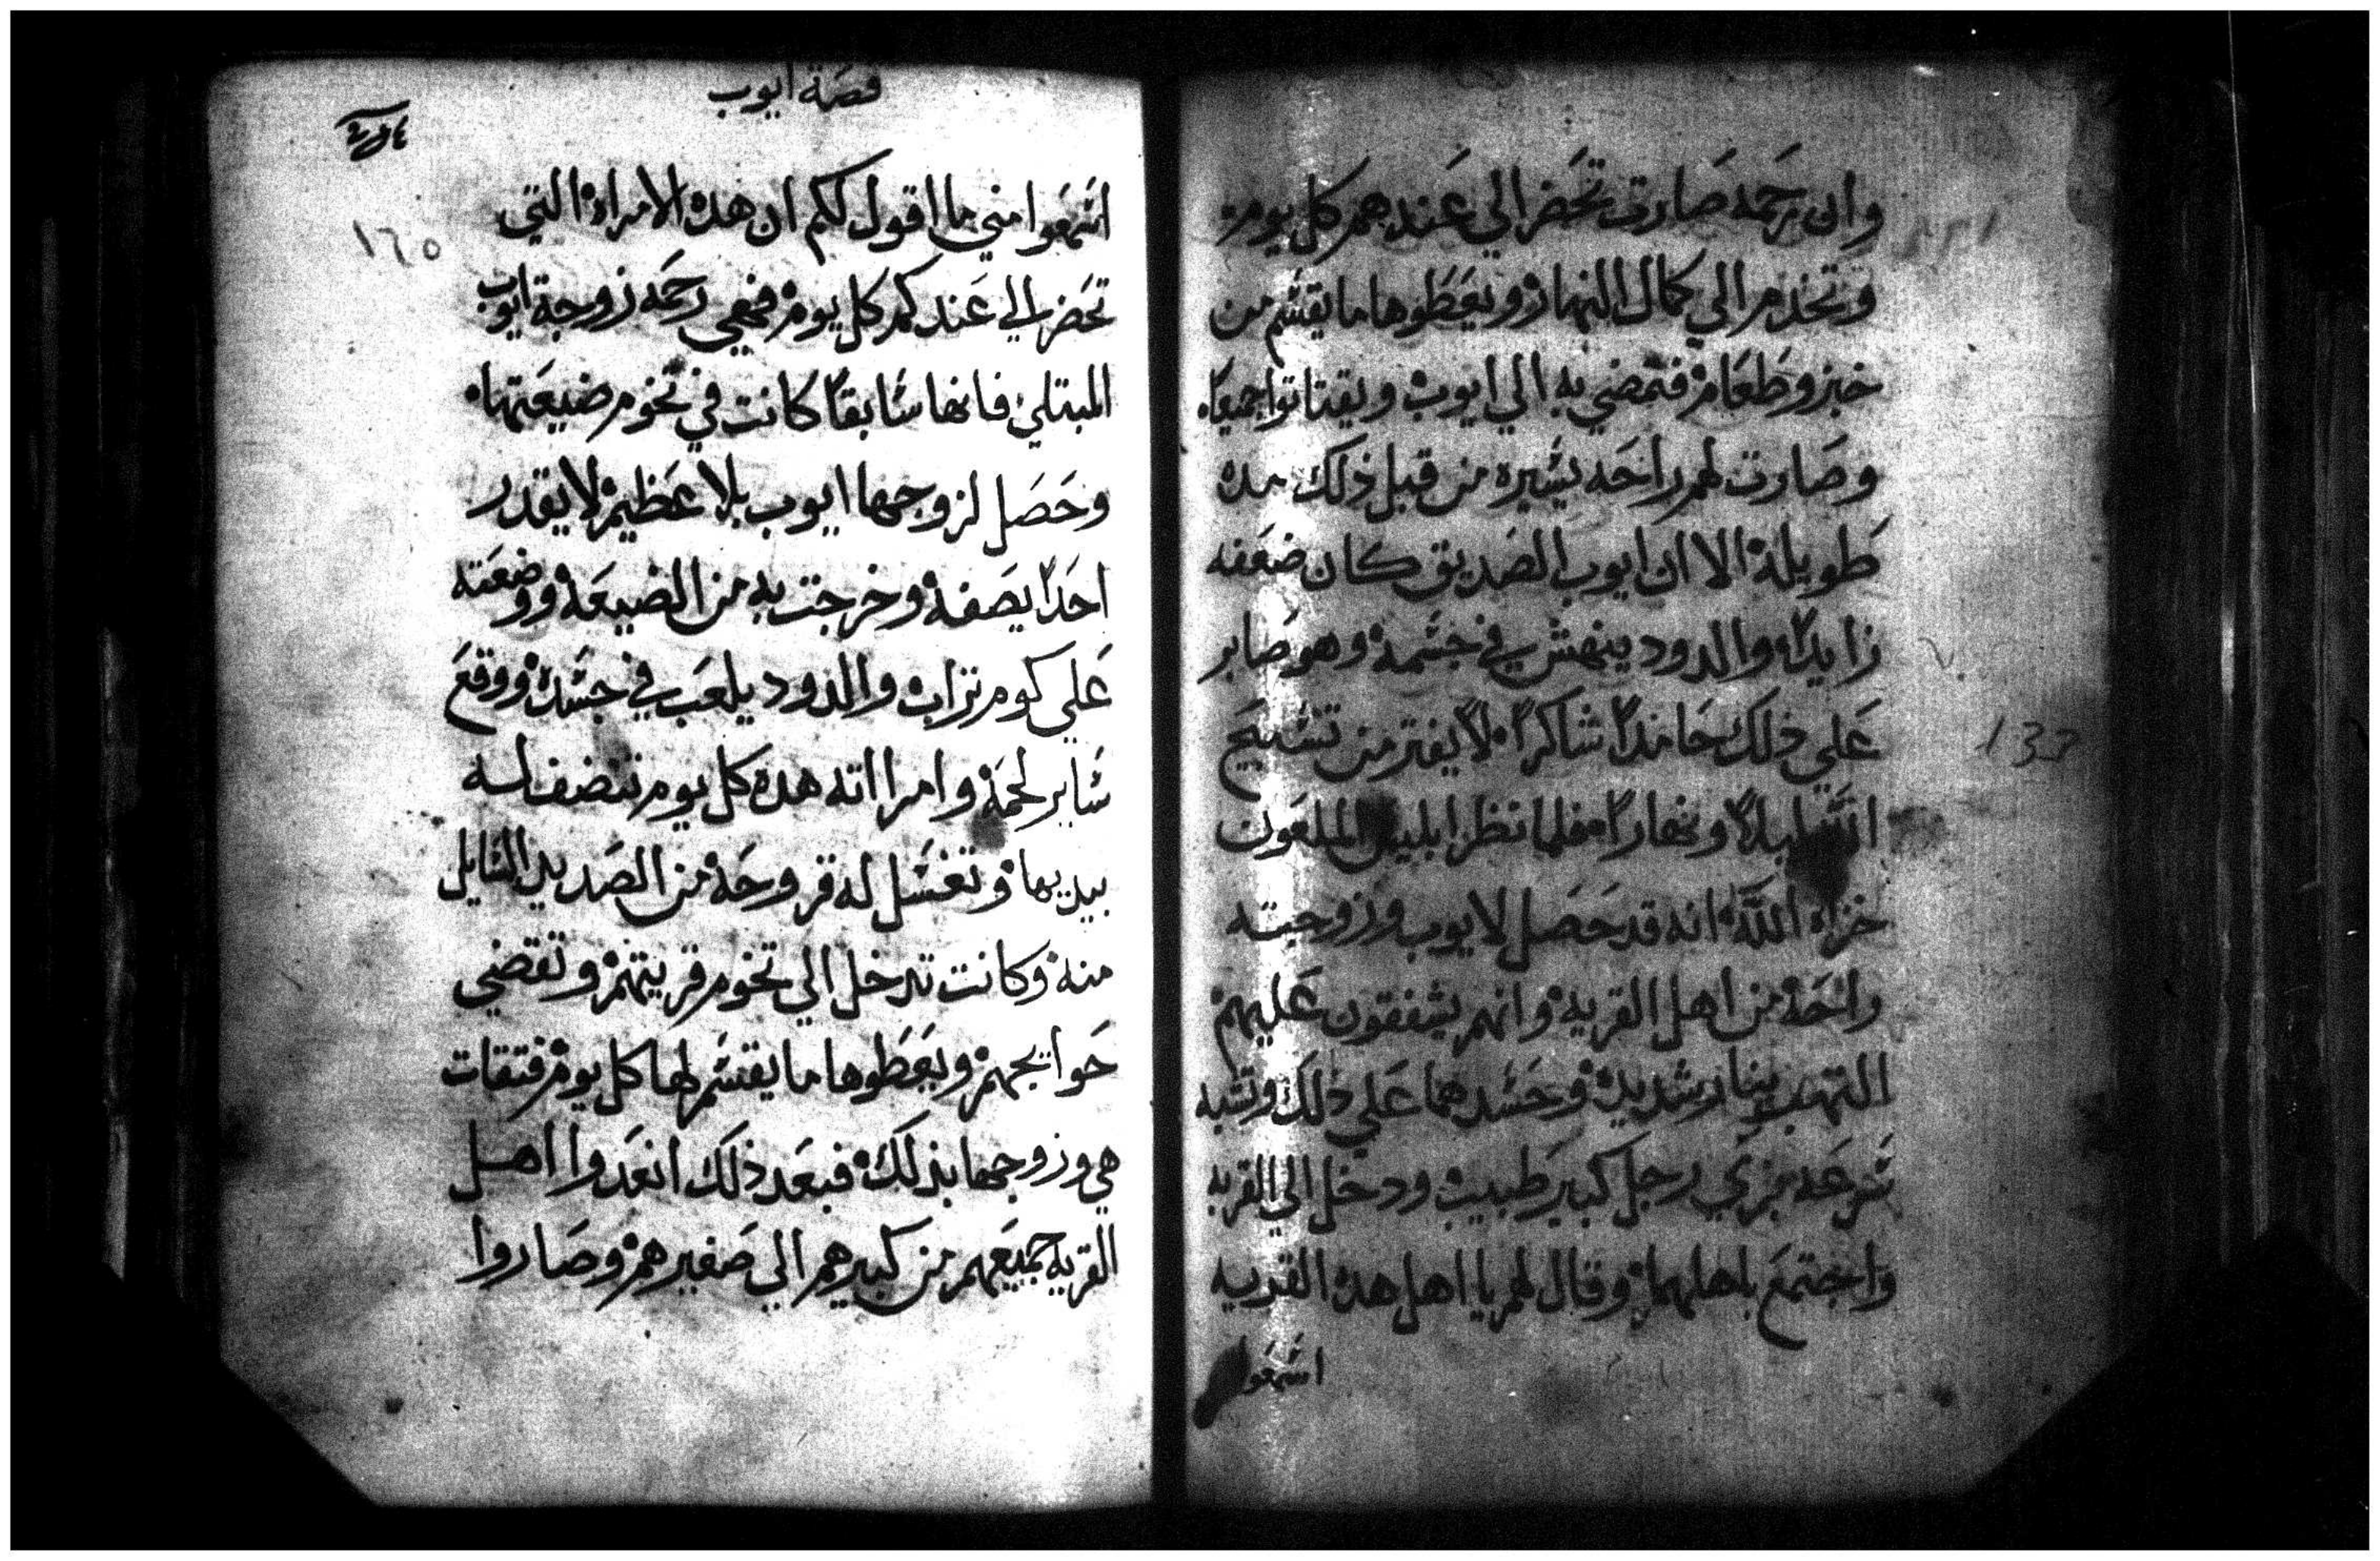 وان رحمه صارت تحضر الي عندهم كل يوم
وتخدم الي كمال النهار ويعطوها ما يقسم من
خبز وطعام فتمضي به الي ايوب ويقتاتوا جميعا
وصارت لهم راحه يسيره من قبل ذلك مده
طويلة الا ان ايوب الصديق كان ضعفه
زايدا والدود ينهش في جسمه وهو صابر
علي ذلك حامدا شاكرا لا يفتر من تسبيح
الله ليلا ونهارا فلما نظر ابليس الملعون
خزاه الله انه قد حصل لايوب وزوجته
راحة من اهل القريه وانهم يشفقون عليهم
التهب بنار شديدة وحسدهما علي ذلك
بزي رجل كبير طبيب ودخل الي القريه
واجتمع باهلها وقال لهم يا اهل هده القريه
اسمعوا
قصة ايوب
١٦٥
اسمعوا مني ما اقول لكم ان هده الامراة التي
تحضر الي عندكم كل يوم فهي رحمه زوجة ايوب
المبتلي فانها سابقا كانت في تخوم ضيعتها
وحصل لزوجها ايوب بلا عظيم لا يقدر
احدا يصفه وخرجت به من الضيعة ووضعته
علي كوم تراب والدود يلعب في جسده ووقع
ساير لحمه وامرااته هده كل يوم تنضف له
بيديها وتغسل له قروحه من الصديد السايل
منه وكانت تدخل الي تخوم قريتهم وتقضي
حوايجهم ويعطوها ما يقسم لها كل يوم فتقات
هي وزوجها بذلك فبعد ذلك انعدوا اهل
القريه جميعهم من كبيرهم الي صغيرهم وصاروا